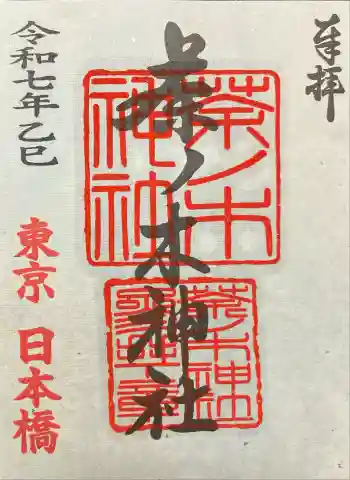 奉拝
茶ノ木神社
茶ノ木
神社
茶ノ木神社
令和七年乙巳
東京
日本橋